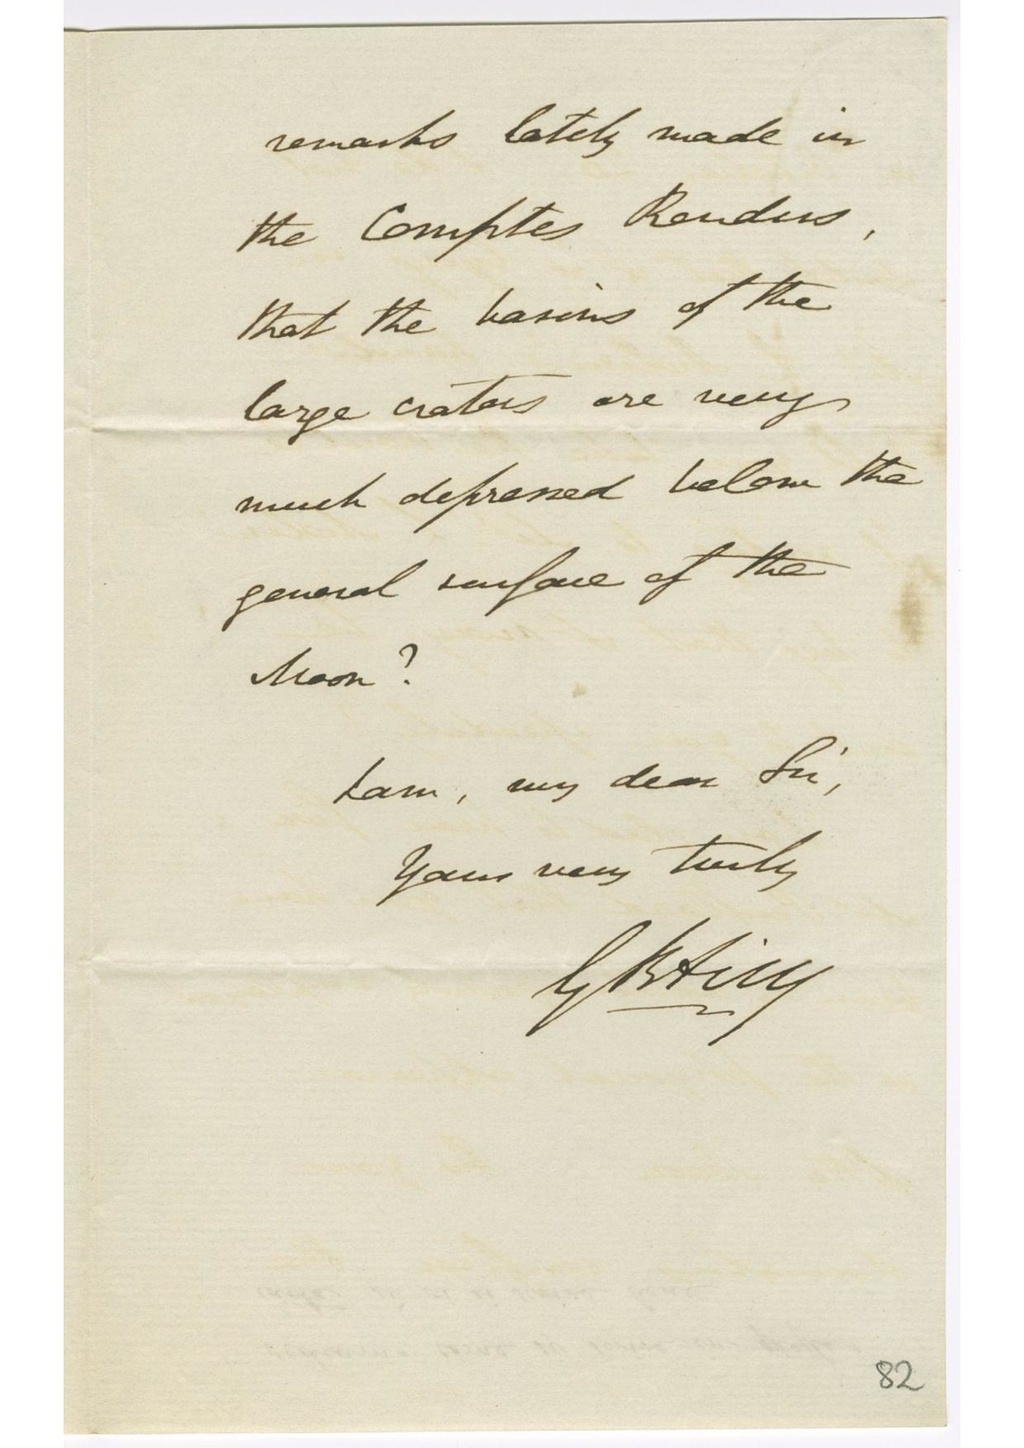 remarks lately made in
the Comptes Rendus,
that the basins of the
large craters are very
much depressed below the
general surface of the
Moon?
I am, my dear Sir,
Yours very truly
G B Airy
82